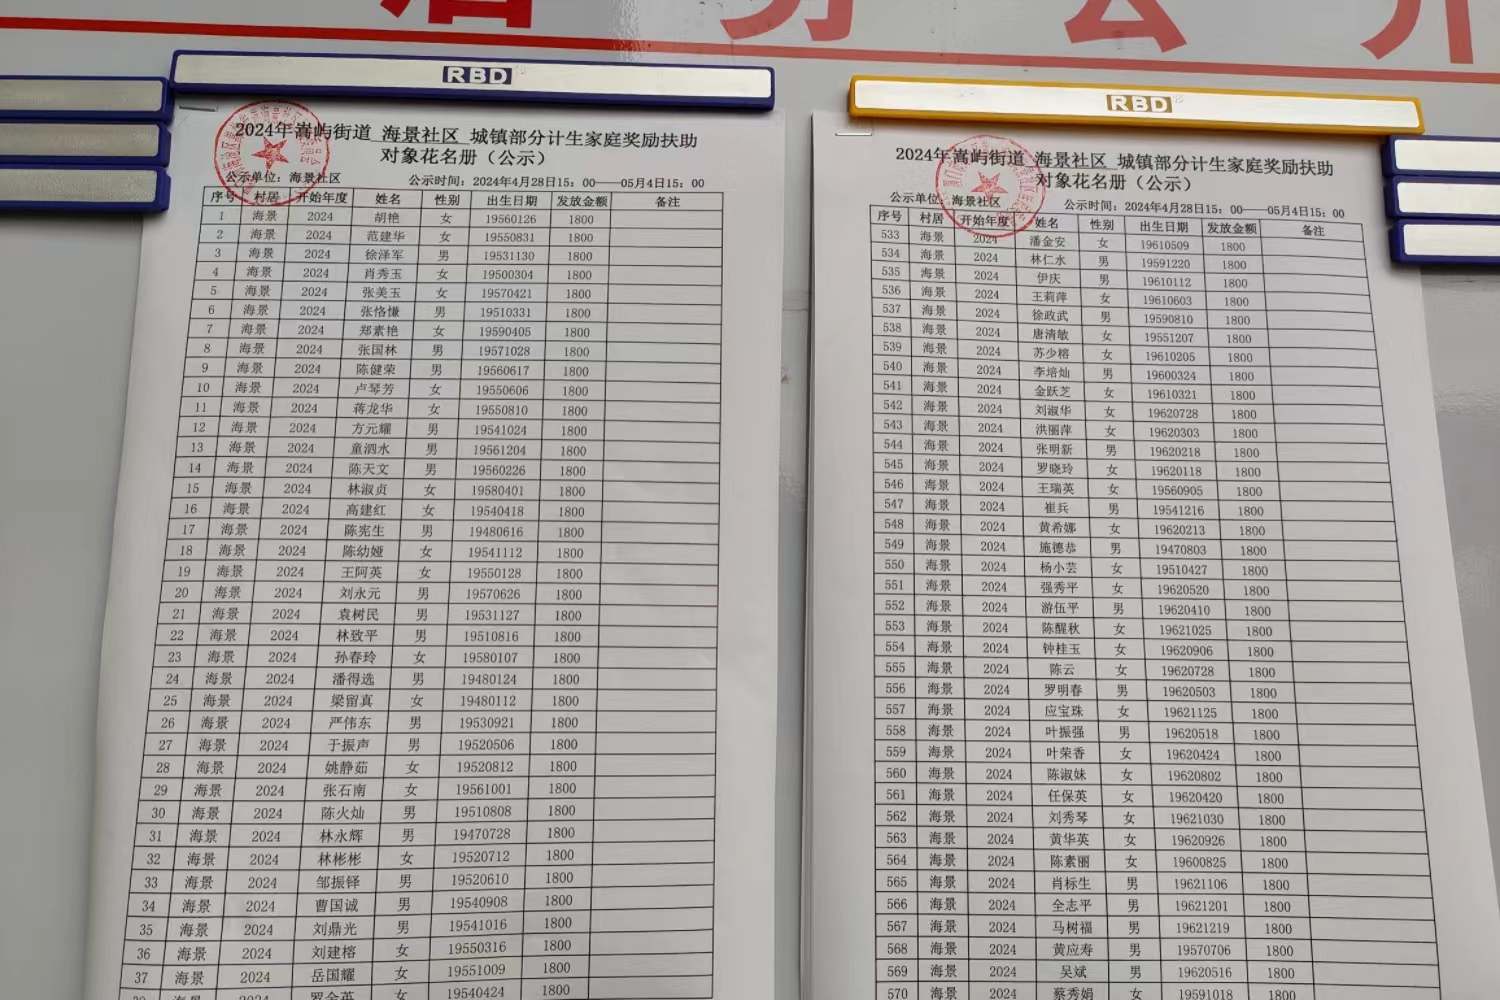 务公开
RBD
2024年嵩屿街道 海景社区 城镇部分计生家庭奖励扶助
对象花名册（公示）
公示单位：海景社区 公示时间：2024年4月28日15：00——05月4日15：00
序号 村居 开始年度 姓名 性别 出生日期 发放金额 备注
1 海景 2024 胡艳 女 19560126 1800
2 海景 2024 范建华 女 19550831 1800
3 海景 2024 徐泽军 男 19531130 1800
4 海景 2024 肖秀玉 女 19500304 1800
5 海景 2024 张美玉 女 19570421 1800
6 海景 2024 张恪慊 男 19510331 1800
7 海景 2024 郑素艳 女 19590405 1800
8 海景 2024 张国林 男 19571028 1800
9 海景 2024 陈健荣 男 19560617 1800
10 海景 2024 卢琴芳 女 19550606 1800
11 海景 2024 蒋龙华 女 19550810 1800
12 海景 2024 方元耀 男 19541024 1800
13 海景 2024 童泗水 男 19561204 1800
14 海景 2024 陈天文 男 19560226 1800
15 海景 2024 林淑贞 女 19580401 1800
16 海景 2024 高建红 女 19540418 1800
17 海景 2024 陈宪生 男 19480616 1800
18 海景 2024 陈幼娅 女 19541112 1800
19 海景 2024 王阿英 女 19550128 1800
20 海景 2024 刘永元 男 19570626 1800
21 海景 2024 袁树民 男 19531127 1800
22 海景 2024 林致平 男 19510816 1800
23 海景 2024 孙春玲 女 19580107 1800
24 海景 2024 潘得选 男 19480124 1800
25 海景 2024 梁留真 女 19480112 1800
26 海景 2024 严伟东 男 19530921 1800
27 海景 2024 于振声 男 19520506 1800
28 海景 2024 姚静茹 女 19520812 1800
29 海景 2024 张石南 女 19561001 1800
30 海景 2024 陈火灿 男 19510808 1800
31 海景 2024 林永辉 男 19470728 1800
32 海景 2024 林彬彬 女 19520712 1800
33 海景 2024 邹振铎 男 19520610 1800
34 海景 2024 曹国诚 男 19540908 1800
35 海景 2024 刘鼎光 男 19541016 1800
36 海景 2024 刘建榕 女 19550316 1800
37 海景 2024 岳国耀 女 19551009 1800
罗金英 女 19540424 1800
RBD
2024年嵩屿街道 海景社区 城镇部分计生家庭奖励扶助
对象花名册（公示）
公示单位：海景社区 公示时间：2024年4月28日15：00——05月4日15：00
序号 村居 开始年度 姓名 性别 出生日期 发放金额 备注
533 海景 2024 潘金安 女 19610509 1800
534 海景 2024 林仁水 男 19591220 1800
535 海景 2024 伊庆 男 19610112 1800
536 海景 2024 王莉萍 女 19610603 1800
537 海景 2024 徐政武 男 19590810 1800
538 海景 2024 唐清敏 女 19551207 1800
539 海景 2024 苏少榕 女 19610205 1800
540 海景 2024 李培灿 男 19600324 1800
541 海景 2024 金跃芝 女 19610321 1800
542 海景 2024 刘淑华 女 19620728 1800
543 海景 2024 洪丽萍 女 19620303 1800
544 海景 2024 张明新 男 19620218 1800
545 海景 2024 罗晓玲 女 19620118 1800
546 海景 2024 王瑞英 女 19560905 1800
547 海景 2024 崔兵 男 19541216 1800
548 海景 2024 黄希娜 女 19620213 1800
549 海景 2024 施德恭 男 19470803 1800
550 海景 2024 杨小芸 女 19510427 1800
551 海景 2024 强秀平 女 19620520 1800
552 海景 2024 游伍平 男 19620410 1800
553 海景 2024 陈醒秋 女 19621025 1800
554 海景 2024 钟桂玉 女 19620906 1800
555 海景 2024 陈云 女 19620728 1800
556 海景 2024 罗明春 男 19620503 1800
557 海景 2024 应宝珠 女 19621125 1800
558 海景 2024 叶振强 男 19620518 1800
559 海景 2024 叶荣香 女 19620424 1800
560 海景 2024 陈淑妹 女 19620802 1800
561 海景 2024 任保英 女 19620420 1800
562 海景 2024 刘秀琴 女 19621030 1800
563 海景 2024 黄华英 女 19620926 1800
564 海景 2024 陈素丽 女 19600825 1800
565 海景 2024 肖标生 男 19621106 1800
566 海景 2024 全志平 男 19621201 1800
567 海景 2024 马树福 男 19621219 1800
568 海景 2024 黄应寿 男 19570706 1800
569 海景 2024 吴斌 男 19620516 1800
570 海景 2024 蔡秀娟 女 19591018 1800